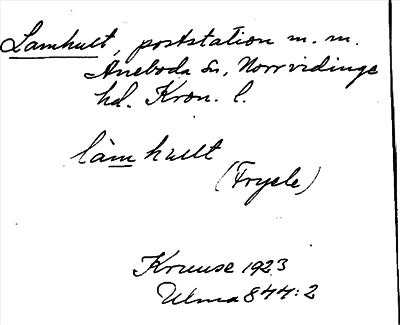 Lamhult, poststation m. m.
Aneboda sn, Norrvidinge
hd. Kron. l.
làmhult
(Fryele)
Kruuse 1923
Ulma 844:2